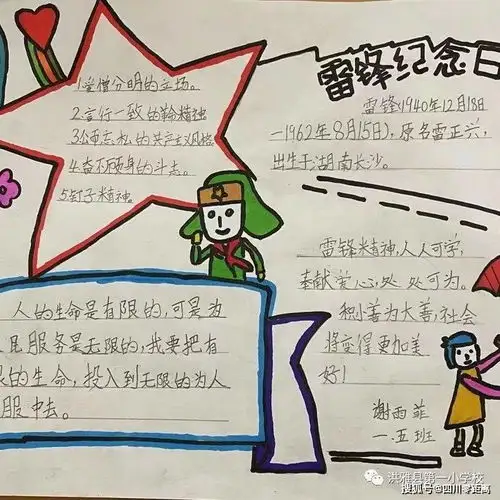 雷锋纪念日
1.爱憎分明的立场。
2.言行一致的精神
3.公而忘私的共产主义风格
4.奋不顾身的斗志。
5.钉子精神。
雷锋(1940年12月18日
-1962年8月15日),原名雷正兴,
出生于湖南长沙。
人的生命是有限的,可是为
民服务是无限的,我要把有
限的生命,投入到无限的为人
服中去。
雷锋精神,人人可学,
奉献爱心,处处可为。
积小善为大善,社会
将变得更加美
好!
谢雨菲
一.五班
洪雅县第一小学校
搜狐号@四川零距离